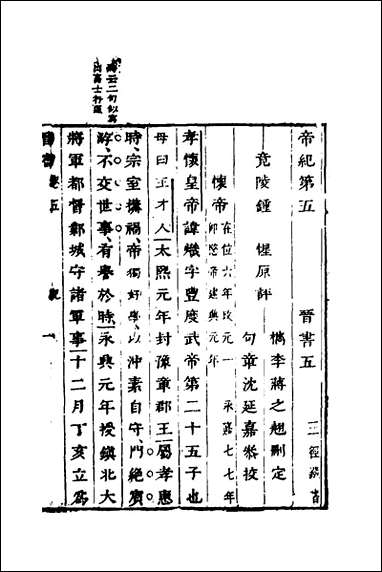 帝紀第五 晉書五
三徑藏書
檇李蔣之翹刪定
竟陵鍾 惺原評
句章沈延嘉叅校
懷帝 在位六年改元一 永嘉七七年
即愍帝建興元年
孝懷皇帝諱熾字豐度武帝第二十五子也
母曰王才人太熙元年封豫章郡王屬孝惠
時宗室搆禍帝獨好學以沖素自守門絕賓
游不交世事有譽於時永興元年授鎮北大
將軍都督鄴城守諸軍事十二月丁亥立爲
云二句似寫
出高士行徑
晉書 卷五 一